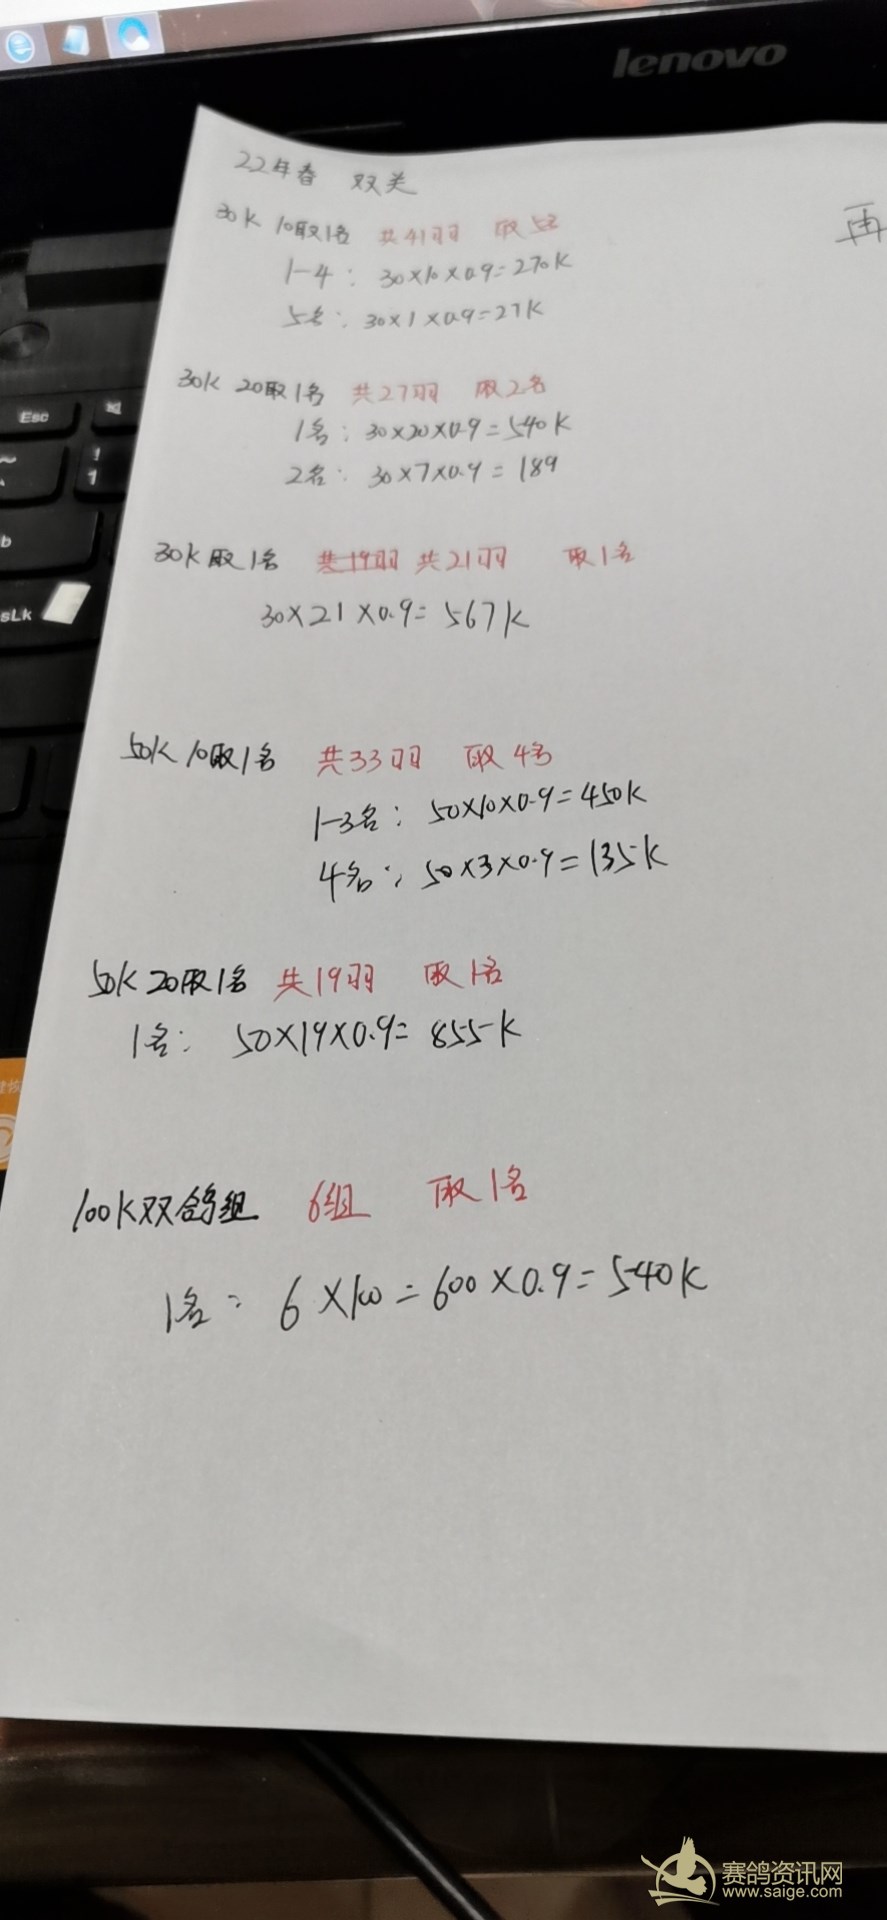 lenovo
22年春 双关
再
30K 10取1名 共41羽 取5名
1-4： 30×10×0.9=270K
5名： 30×1×0.9=27K
30K 20取1名 共27羽 取2名
1名： 30×20×0.9=540K
2名： 30×7×0.9=189
30K取1名 共19羽 共21羽 取1名
30×21×0.9=567K
50K 10取1名 共33羽 取4名
1-3名： 50×10×0.9=450K
4名： 50×3×0.9=135K
50K 20取1名 共19羽 取1名
1名： 50×19×0.9=855K
100K双鸽组 6组 取1名
1名： 6×100=600×0.9=540K
Esc
~
!
1
b
sLk
赛鸽资讯网
www.saige.com